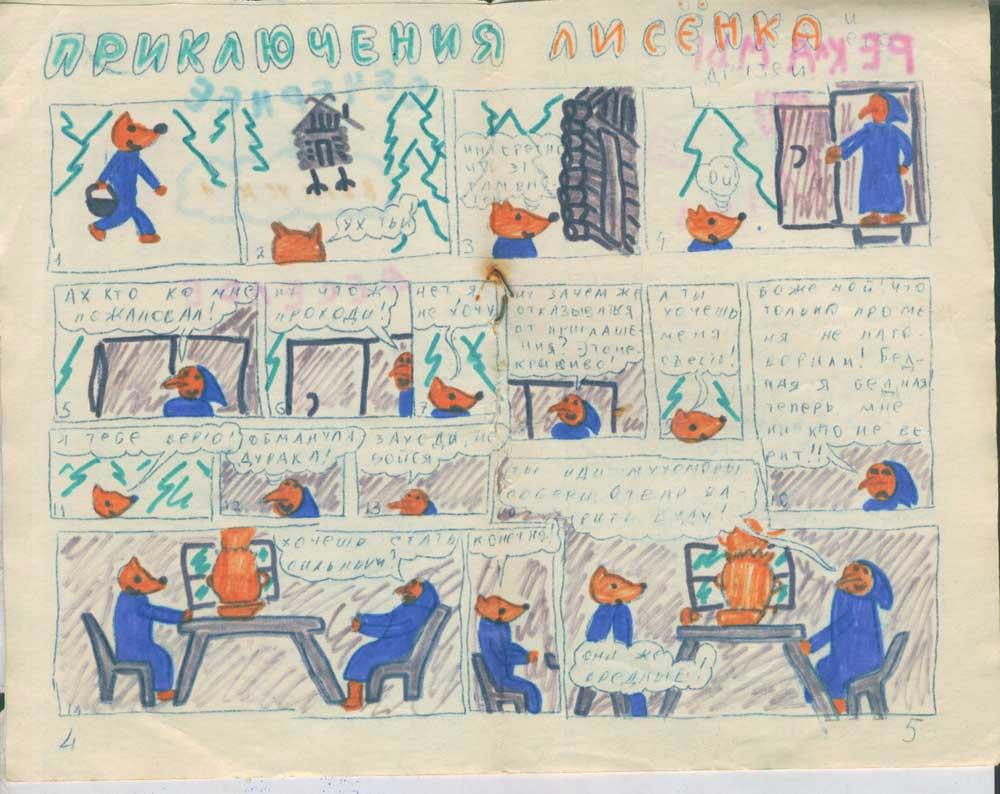 ПРИКЛЮЧЕНИЯ ЛИСЁНКА
и
друзей
1
2
УХ ТЫ
3
ИНТЕРЕСНО
4
ОЙ!
5
АХ КТО КО МНЕ
ПОЖАЛОВАЛ!
6
НУ ЧТО Ж
ПРОХОДИ!
7
НЕТ Я
НЕ ХОЧУ
НУ ЗАЧЕМ ЖЕ
ОТКАЗЫВАЕШЬСЯ
ОТ ПРИГЛАШЕ
НИЯ? ЭТО НЕ
КРАСИВО!
А ТЫ
ХОЧЕШЬ
МЕНЯ
СЪЕСТЬ!
10
БОЖЕ МОЙ! ЧТО
ТОЛЬКО ПРО МЕ
НЯ НЕ НАГО-
ВОРИЛИ! БЕД-
НАЯ Я БЕДНАЯ
ТЕПЕРЬ МНЕ
НИ КТО НЕ ВЕ
РИТ!!
11
Я ТЕБЕ ВЕРЮ!
12
ОБМАНУЛА
ДУРАКА!
13
ЗАХОДИ, НЕ
БОЙСЯ
14
ХОЧЕШЬ СТАТЬ
СИЛЬНЫМ?
КОНЕЧНО!
ТЫ ИДИ МУХОМОРЫ
СОБЕРИ. ОТВАР ВА-
РИТЬ БУДУ!
ОНИ ЖЕ
ВРЕДНЫЕ!
4
5